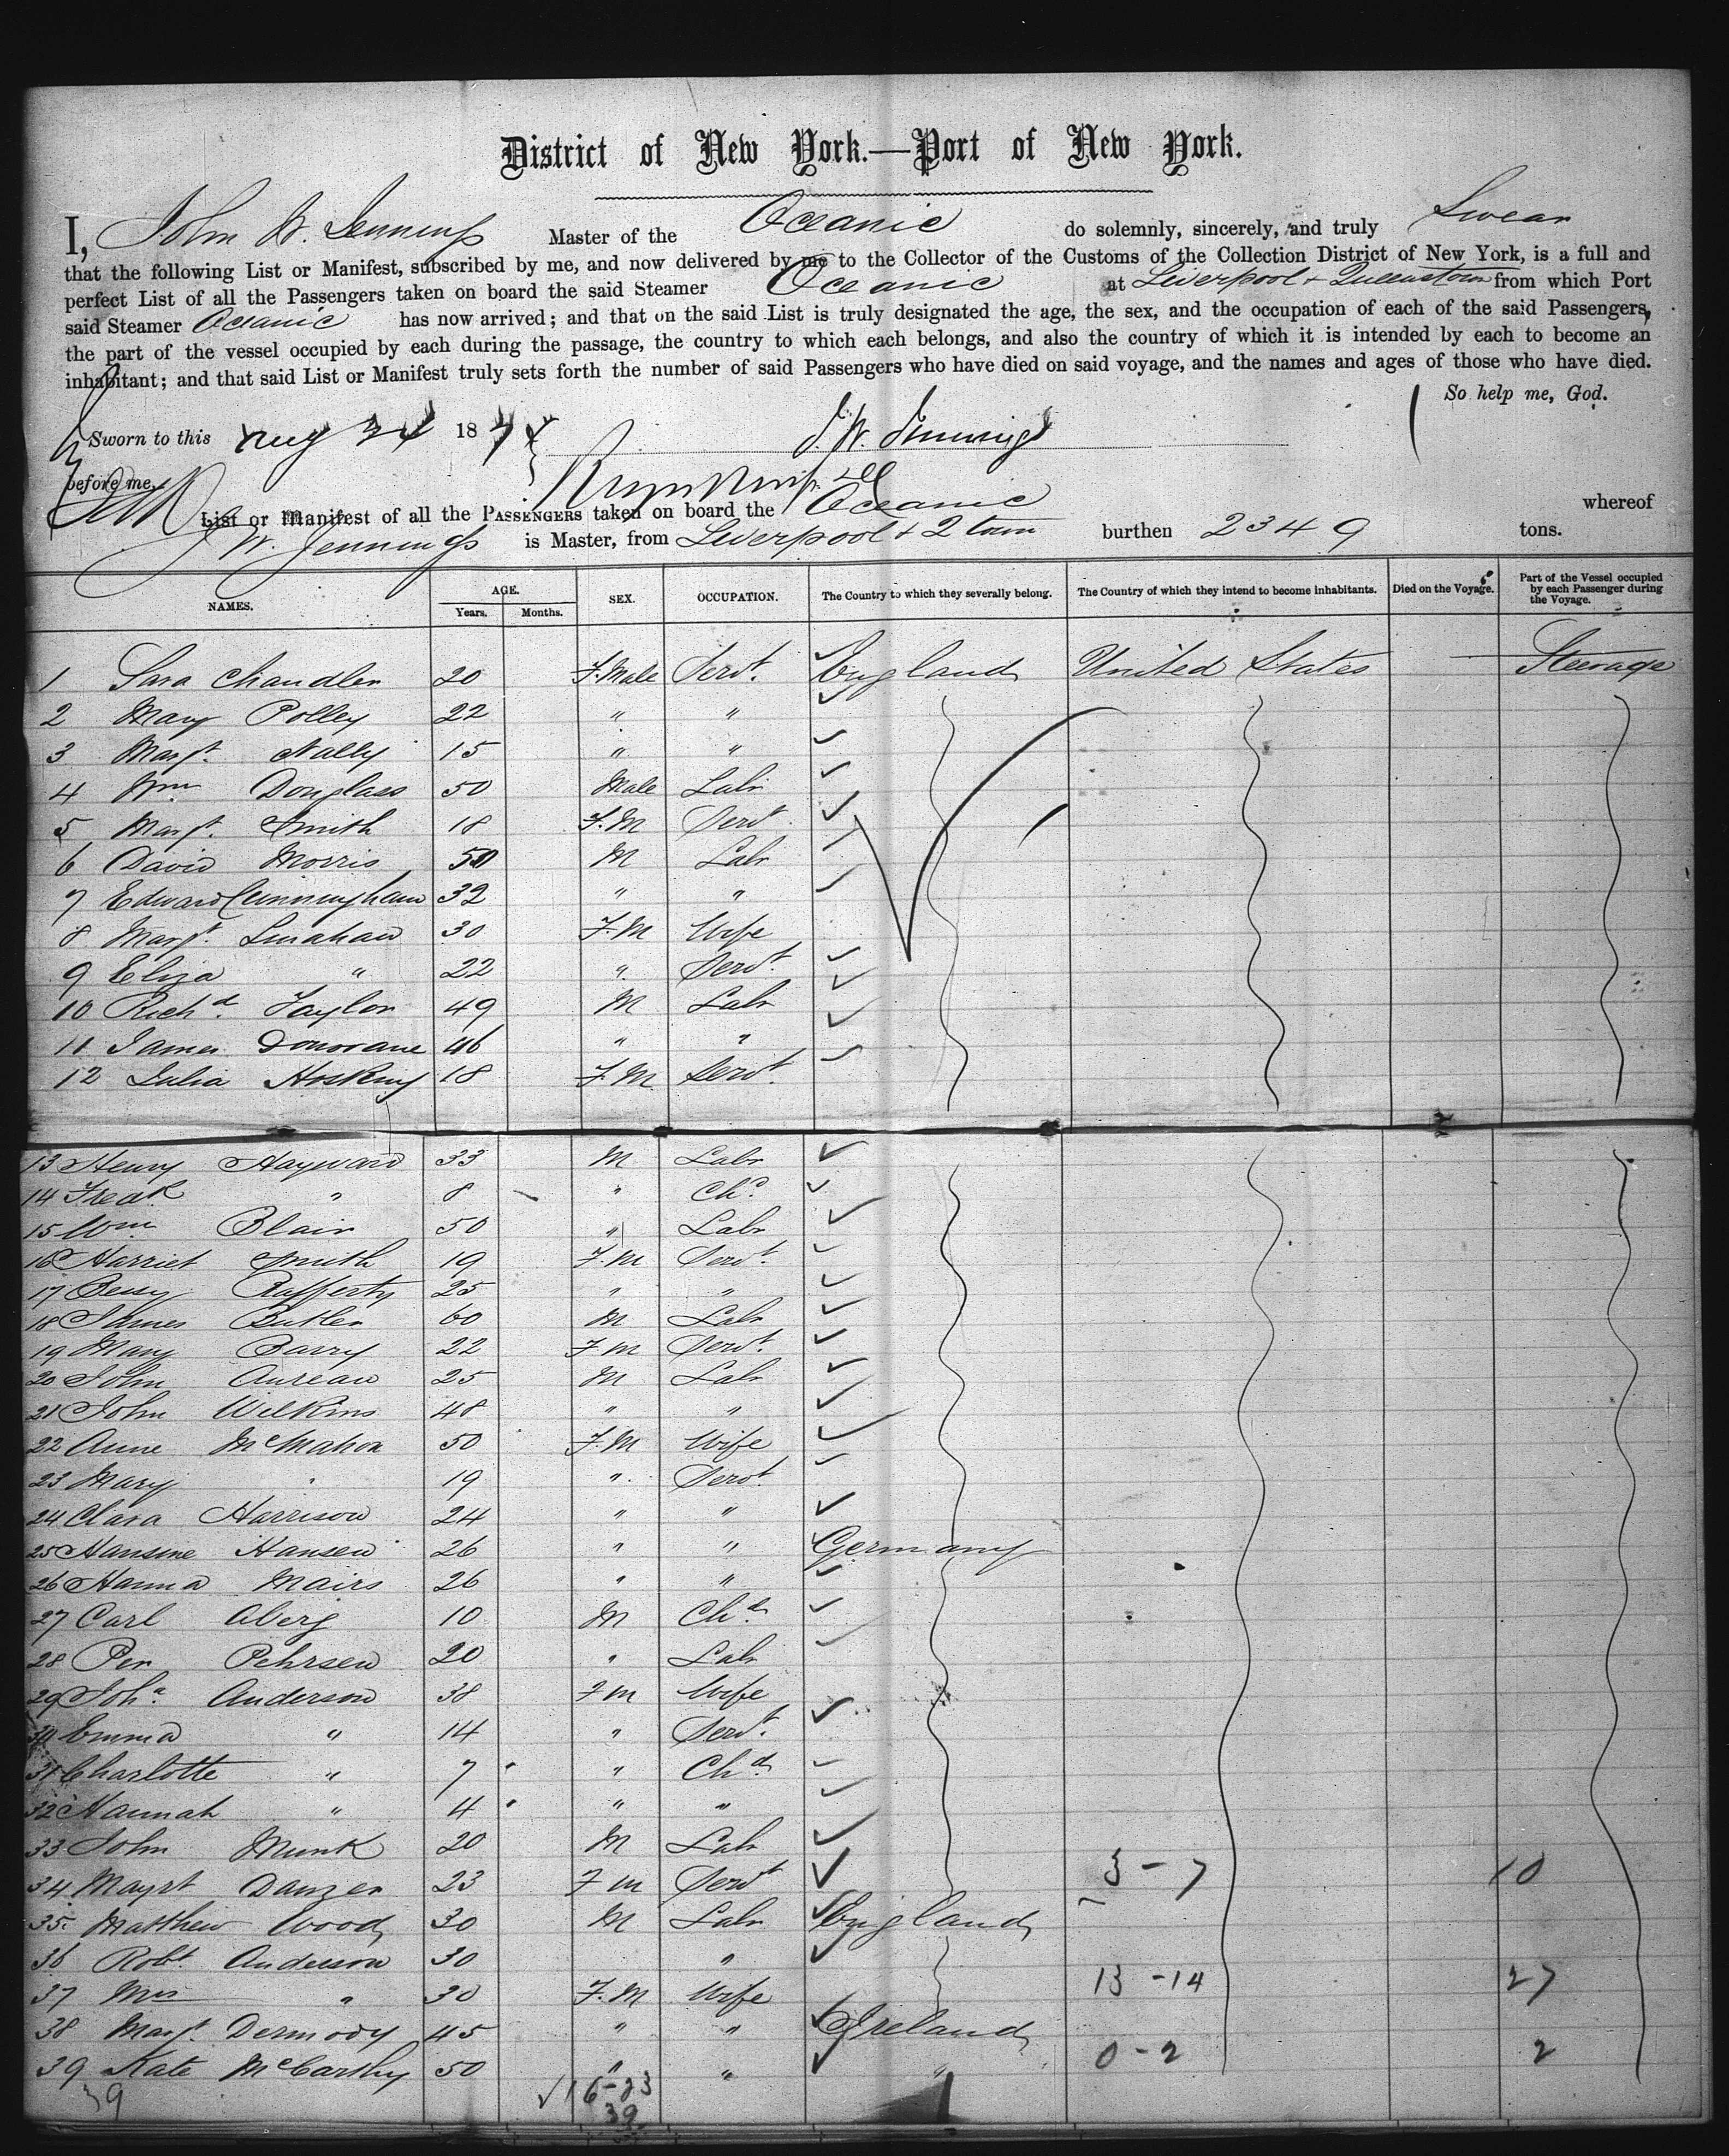 District of New York.—Port of New York.
I, John W. Jennings Master of the Oceanic do solemnly, sincerely, and truly Swear
that the following List or Manifest, subscribed by me, and now delivered by me to the Collector of the Customs of the Collection District of New York, is a full and
perfect List of all the Passengers taken on board the said Steamer Oceanic at Liverpool + Queenstown from which Port
said Steamer Oceanic has now arrived; and that on the said List is truly designated the age, the sex, and the occupation of each of the said Passengers,
the part of the vessel occupied by each during the passage, the country to which each belongs, and also the country of which it is intended by each to become an
inhabitant; and that said List or Manifest truly sets forth the number of said Passengers who have died on said voyage, and the names and ages of those who have died.
So help me, God.
Sworn to this Aug 187 J. W. Jennings
before me,
List or Manifest of all the PASSENGERS taken on board the Oceanic whereof
J W. Jennings is Master, from Liverpool + Q town burthen 2349 tons.
NAMES. AGE. Years. Months. SEX. OCCUPATION. The Country to which they severally belong. The Country of which they intend to become inhabitants. Died on the Voyage. Part of the Vessel occupied by each Passenger during the Voyage.
1 Sara Chandler 20 F. Male Servt. England United States Steerage
2 Mary Polley 22 " "
3 Margt. Nally 15 " "
4 Wm Douglass 50 Male Labr
5 Margt. Smith 18 F. M Servt.
6 David Morris 50 M Labr
7 Edward Cunningham 32 " "
8 Margt. Linahan 30 F. M Wife
9 Eliza " 22 " Servt.
10 Richd. Taylor 49 M Labr
11 James Donovane 46 " "
12 Julia Hosking 18 F. M Servt.
13 Henry Hayward 33 M Labr
14 Fredk " 8 " Chd.
15 Wm Blair 50 " Labr
16 Harriet Smith 19 F. M Servt.
17 Bessy Rafferty 25 " "
18 James Butler 60 M Labr
19 Mary Barry 22 F m Servt.
20 John 25 M Labr
21 John Wilkins 48 " "
22 Anne McMahon 50 F. M Wife
23 Mary " 19 " Servt
24 Clara Harrison 24 " "
25 Hansine Hansen 26 " " Germany
26 Hanna Mairs 26 " "
27 Carl Aberg 10 M Chd.
28 Per Pehrsen 20 " Labr
29 Joha. Anderson 38 F m Wife
30 Emma " 14 " Servt.
31 Charlotte " 7 " Chd.
32 Hannah " 4 " "
33 John Munk 20 M Labr
34 Mayrt Danzer 23 F m Servt 3 - 7 10
35 Matthew Wood 30 M Labr England
36 Robt. Anderson 30 "
37 Mrs " 30 F. M Wife 13 - 14 27
38 Margt. Dermody 45 " " Ireland
39 Kate McCarthy 50 " " " 0 - 2 2
39 16-23
39